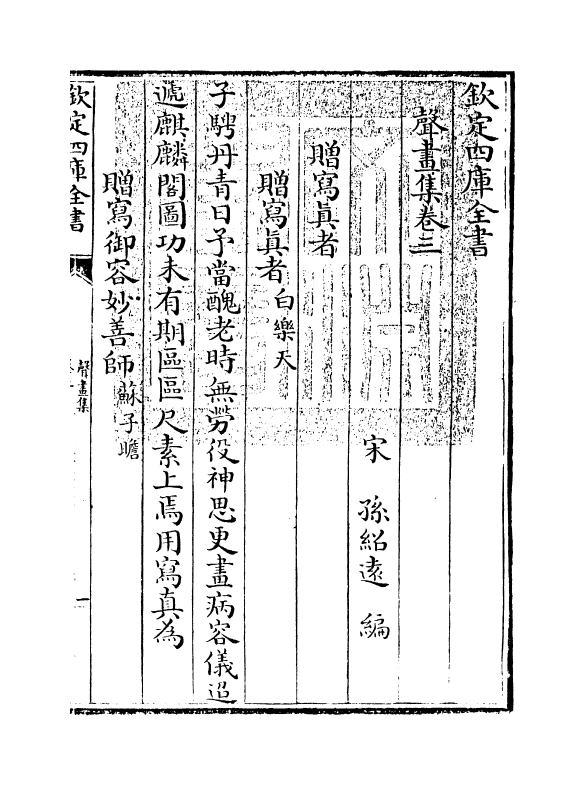 欽定四庫全書
聲畫集卷三
宋 孫紹遠 編
贈寫眞者
贈寫眞者白樂天
子騁丹青日予當醜老時無勞役神思更畫病容儀迢
遞麒麟閣圖功未有期區區尺素上焉用寫真為
贈寫御容妙善師蘇子瞻
欽定四庫全書
聲畫集
一